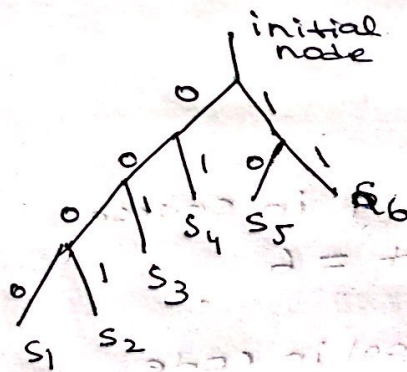 initial
node
0 1
0 1 0 1
0 1 S4 S5 S6
0 1 S3
S1 S2